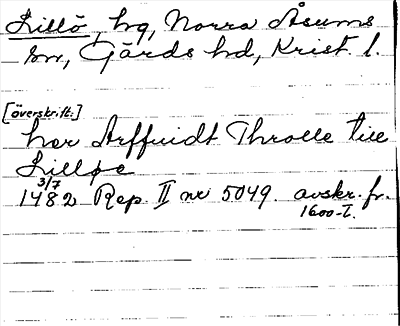 Lillö, hg, Norra Åsums
sn, Gärds hd, Krist. l.
[överskrift:]
her Arffuidt Throlle till
Lilløe
3/7
1482 Rep. II nr 5049. avskr. fr.
1600-t.